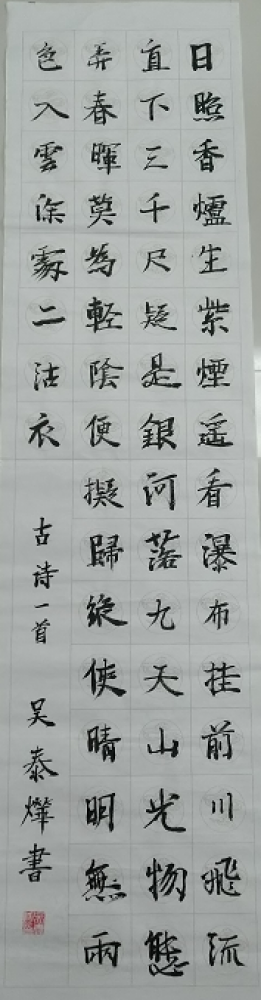 日照香爐生紫煙遥看瀑布挂前川飛流
直下三千尺疑是銀河落九天山光物態
弄春暉莫為輕陰便擬歸縱使晴明無雨
色入雲深處二沾衣
古诗一首 吴泰燁書